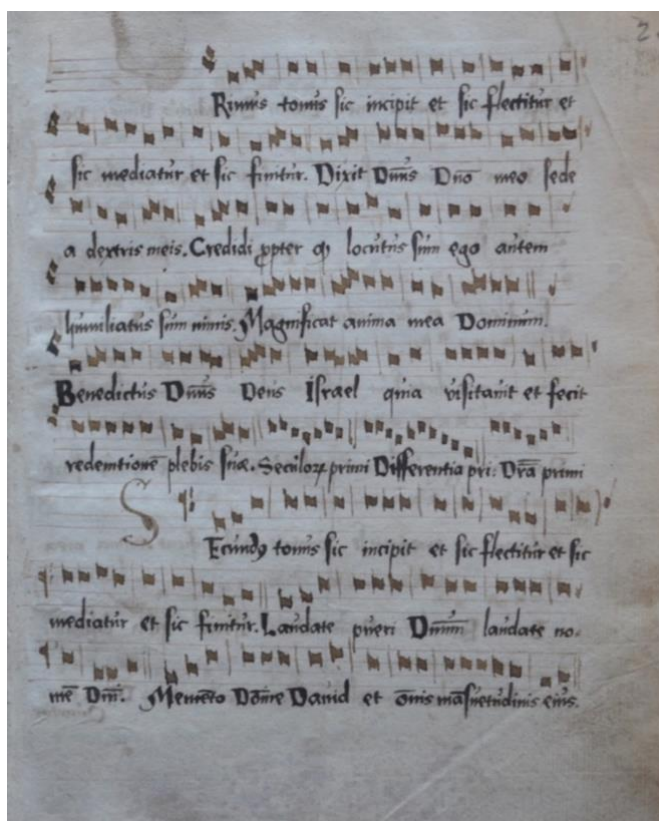 2
Rimus tonus sic incipit et sic flectitur et
sic mediatur et sic finitur. Dixit Dn̄s Dn̄o meo sede
a dextris meis. Credidi ꝓpter qꝫ locutus sum ego autem
humiliatus sum nimis. Magnificat anima mea Dominum.
Benedictus Dn̄s Deus Israel quia visitauit et fecit
redemtionē plebis suæ. Seculoꝝ primi Differentia pri: Dr̄a primi
S
Ecundꝰ tonus sic incipit et sic flectitur et sic
mediatur et sic finitur. Laudate pueri Dn̄um laudate no-
mē Dn̄i. Memēto Dōmine Dauid et ōnis māsuetudinis eius.